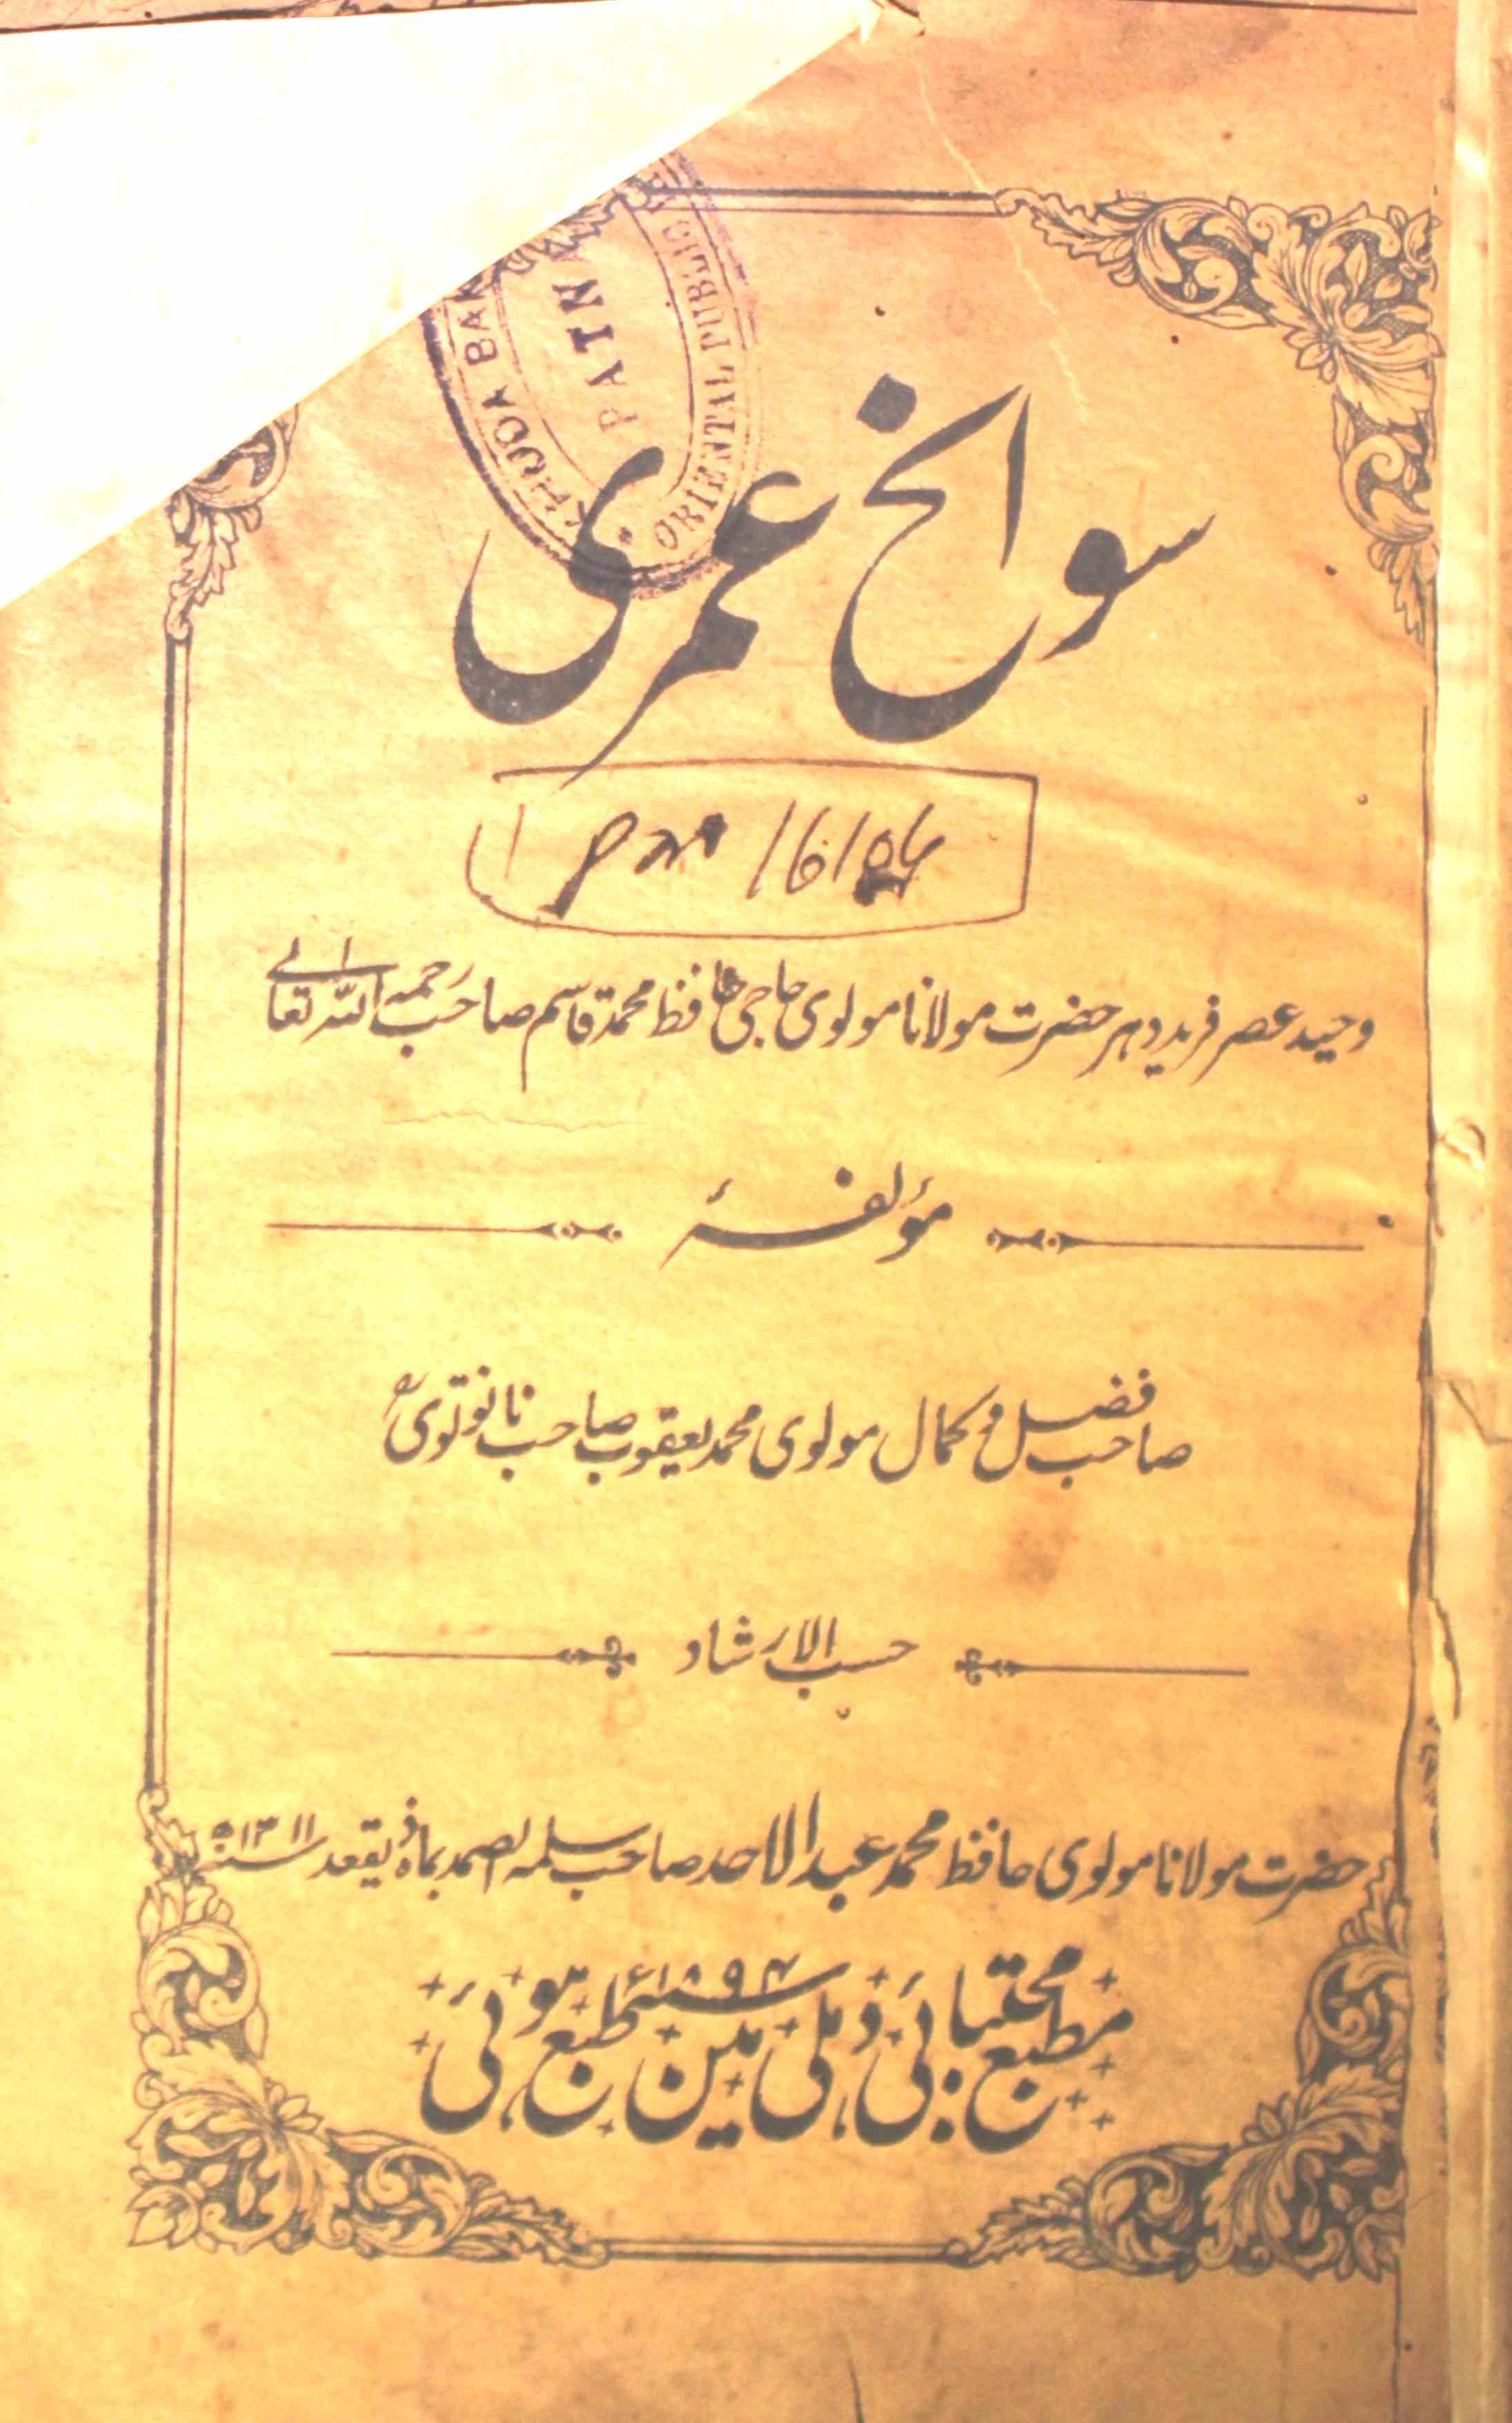 KHUDA BAK
PATNA
ORIENTAL PUBLIC
سوانح عمری
وحید عصر فرید دہر حضرت مولانا مولوی حاجی حافظ محمد قاسم صاحب رحمہ اللہ تعالے
مؤلفہٗ
صاحب فضل و کمال مولوی محمد یعقوب صاحب نانوتوی
حسب الارشاد
حضرت مولانا مولوی حافظ محمد عبدالاحد صاحب سلمہ الصمد بماہ ذیقعد سنہ ۱۳۱۱ھ
مطبع مجتبائی دہلی مین سنہ ۱۸۹۴ء طبع ہوئی